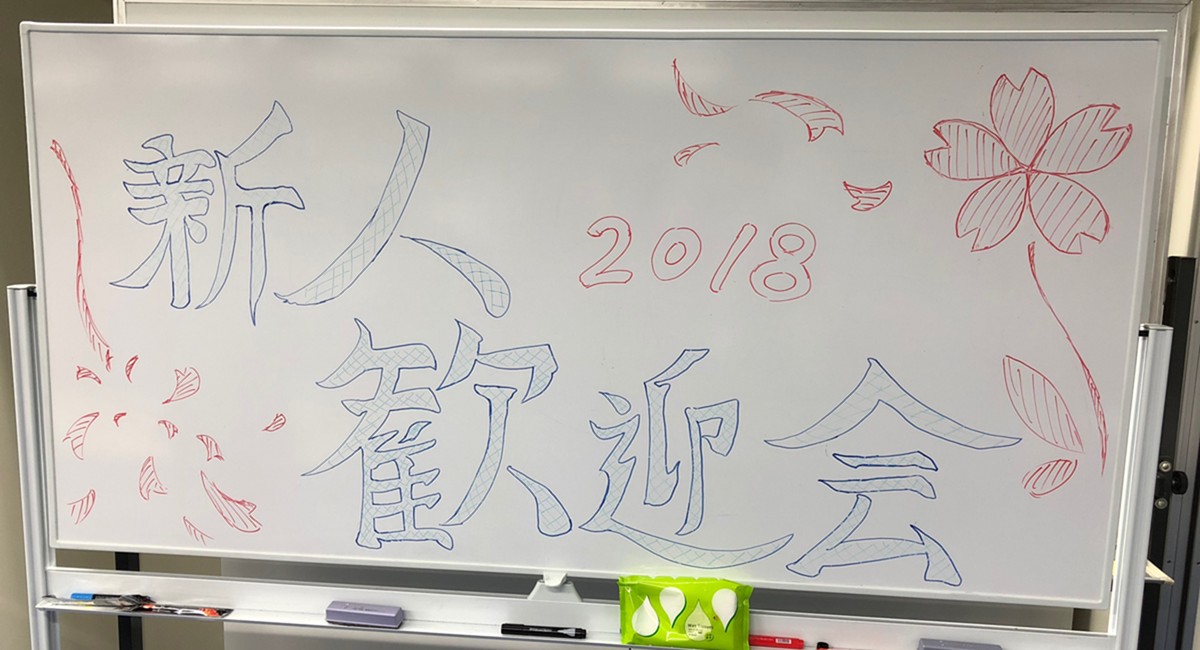 新人
2018
歓迎会